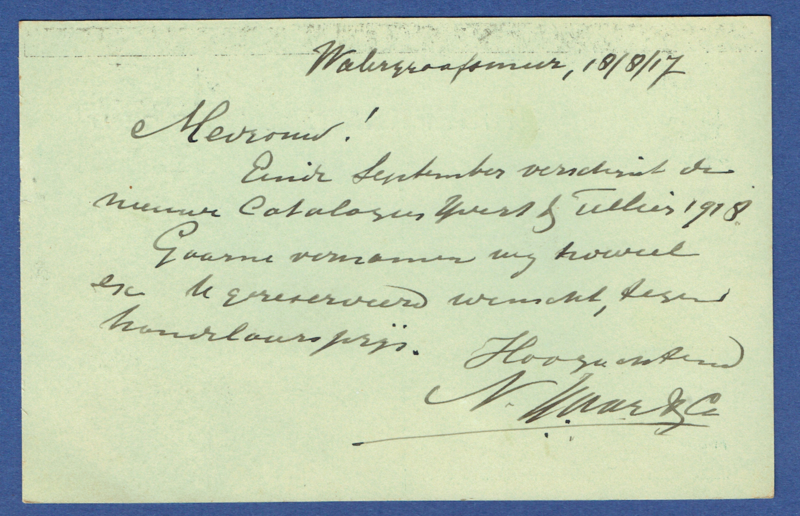 Watergraafsmeer, 18/8/17
Mevrouw!
Einde September verschijnt de
nieuwe Catalogus Yvert & Tellier 1918.
Gaarne vernamen wij hoeveel
ex U gereserveerd wenscht, tegen
handelaarsprijs.
Hoogachtend
N. & Co